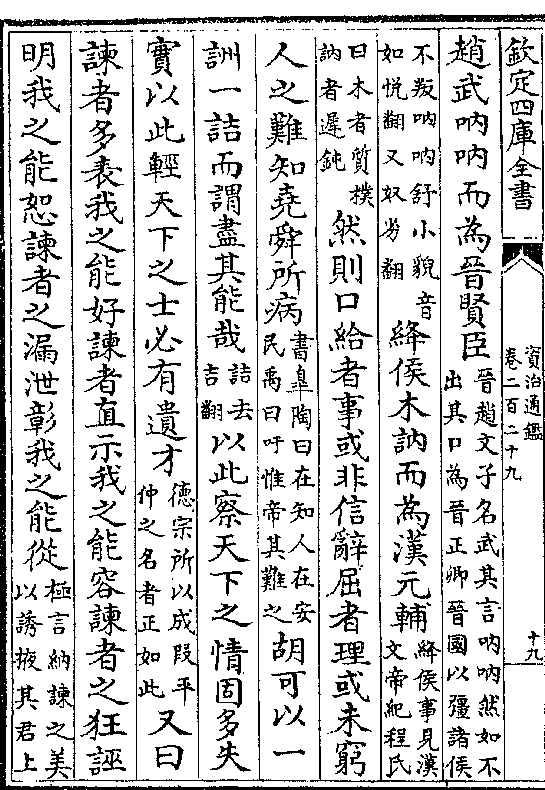 欽定四庫全書
資治通鑑
卷二百二十九
十九
趙武呐呐而為晉賢臣晉趙文子名武其言呐呐然如不
出其口為晉正卿晉國以彊諸侯
不叛呐呐舒小貌音
如悅翻又奴劣翻絳侯木訥而為漢元輔絳侯事見漢
文帝紀程氏
曰木者質樸
訥者遲鈍然則口給者事或非信辭屈者理或未窮
人之難知堯舜所病書臯陶曰在知人在安
民禹曰吁惟帝其難之胡可以一
詶一詰而謂盡其能哉詰去
吉翻以此察天下之情固多失
實以此輕天下之士必有遺才德宗所以成段平
仲之名者正如此又曰
諫者多表我之能好諫者直示我之能容諫者之狂誣
明我之能恕諫者之漏泄彰我之能從極言納諫之美
以誘掖其君上